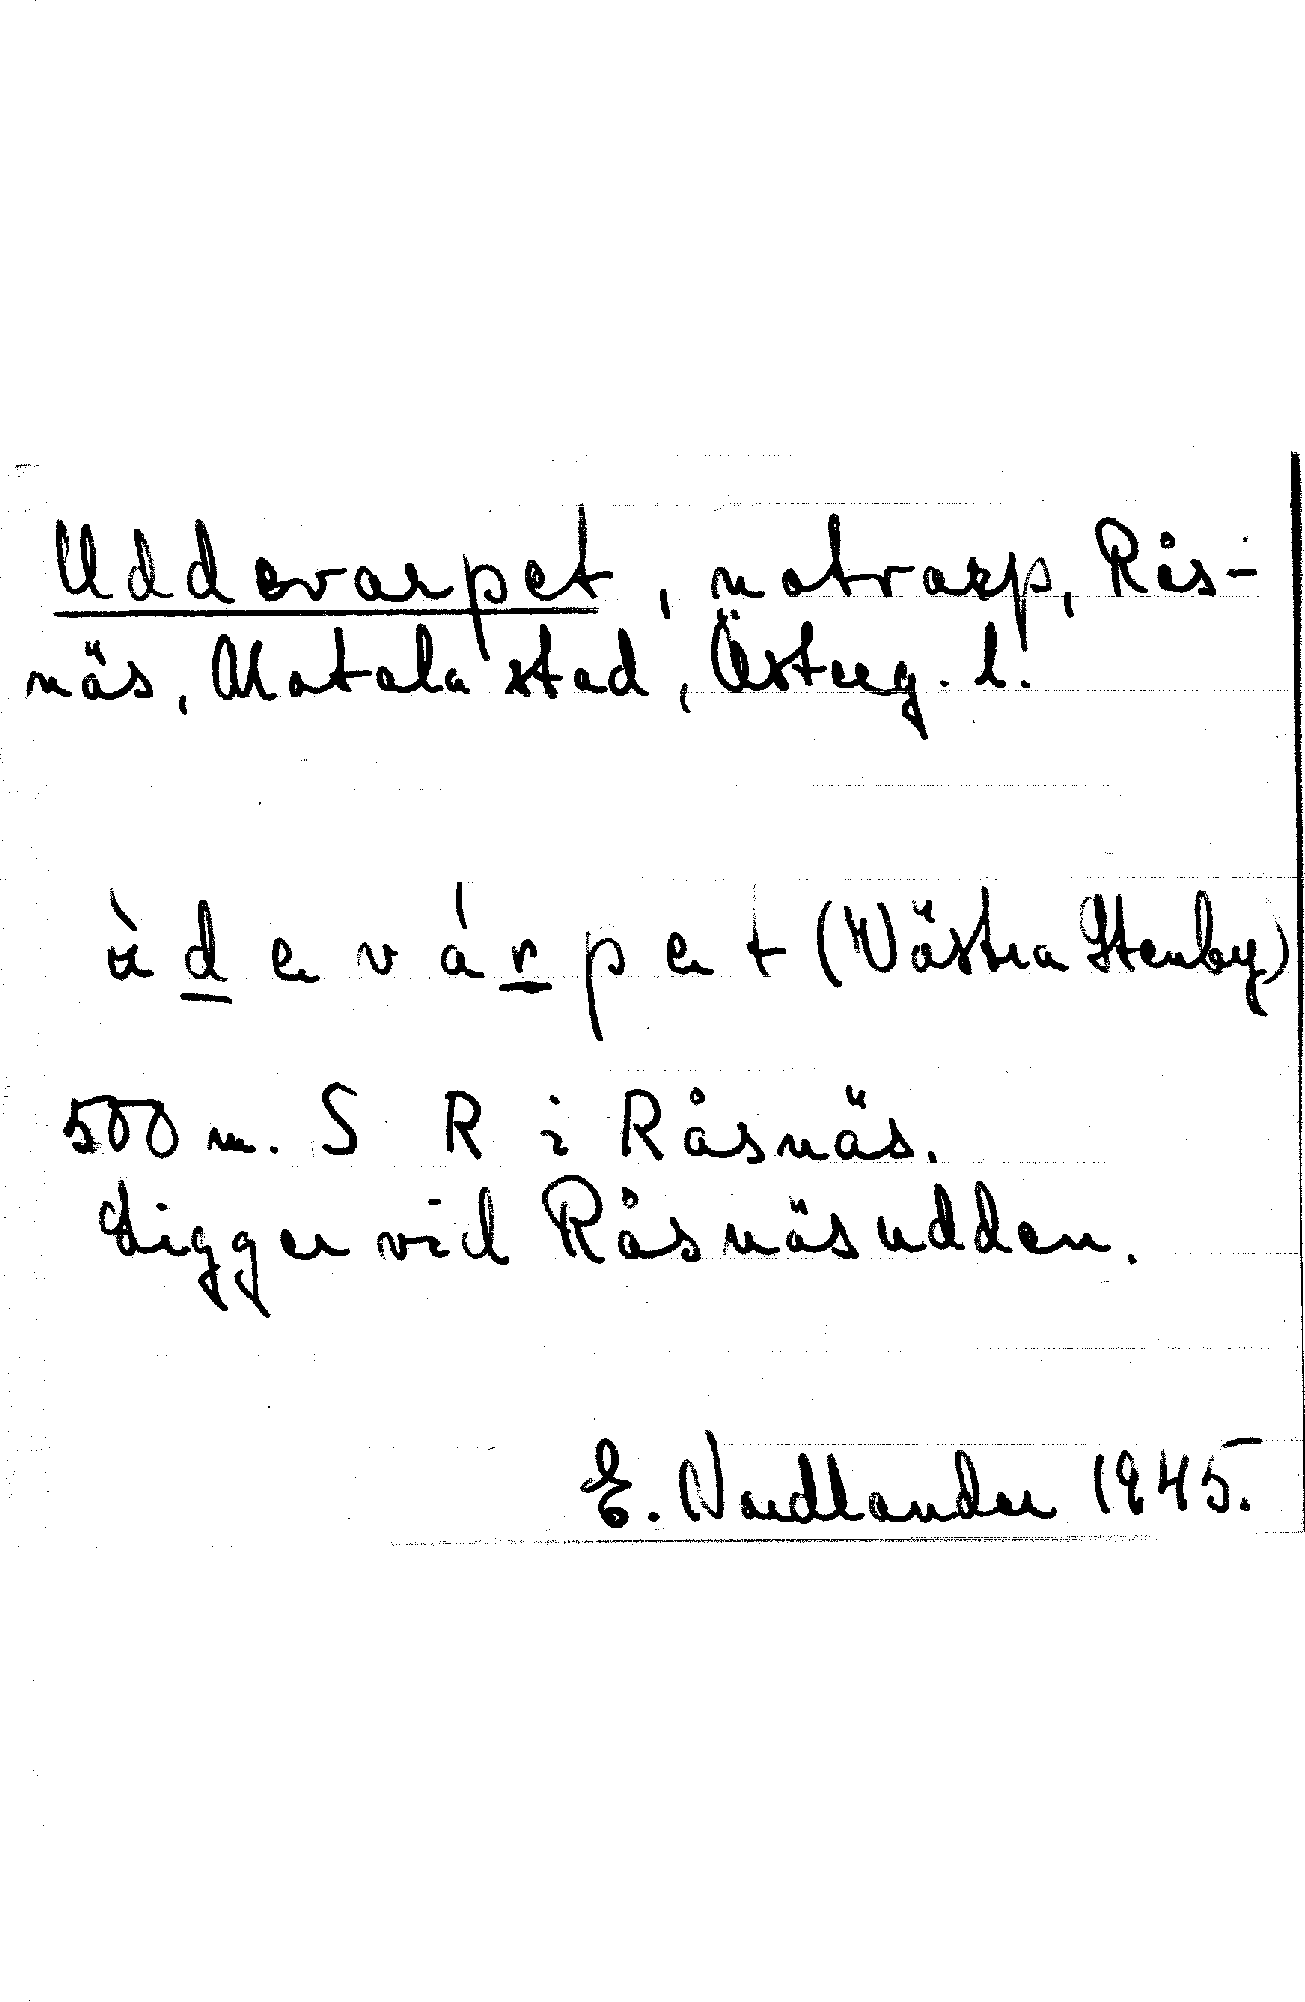 Uddevarpet, notvarp, Rås-
näs, Motala stad, Österg. l.
ὰdevárpet (Västra Stenby)
500 m. S R i Råsnäs.
Ligger vid Råsnäsudden.
E. Nordlander 1945.